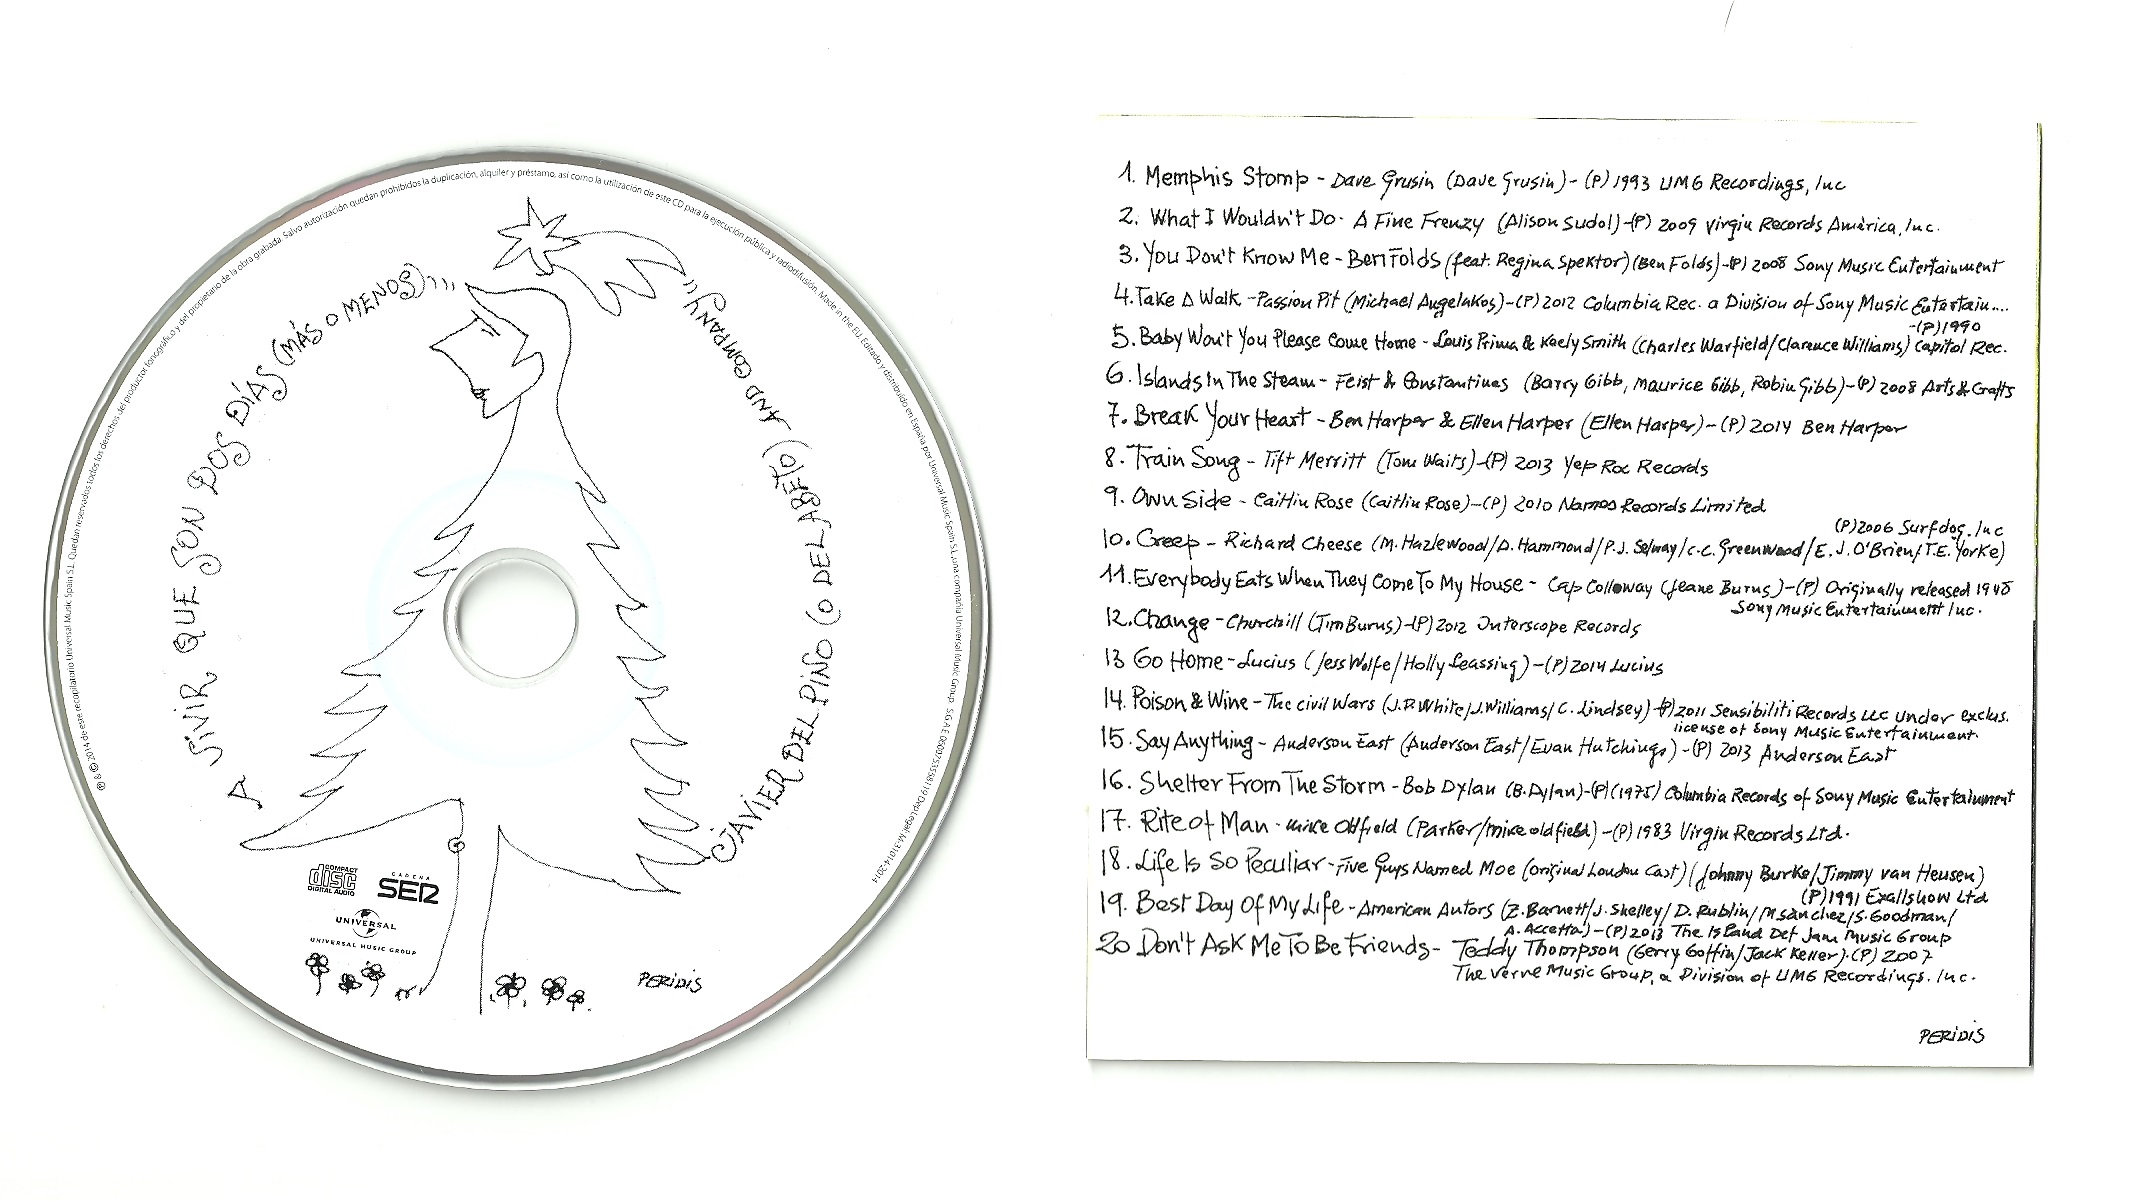 ℗ & © 2014 de este recopilatorio Universal Music Spain S.L. Quedan reservados todos los derechos del productor fonográfico y del propietario de la obra grabada. Salvo autorización quedan prohibidos la duplicación, alquiler y préstamo, así como la utilización de este CD para la ejecución pública y radiodifusión. Made in the EU. Editado y distribuido en España por Universal Music Spain S.L., una compañía Universal Music Group.
A VIVIR QUE SON DOS DÍAS (MÁS O MENOS)
(JAVIER DEL PINO (O DEL ABETO) AND COMPANY)
COMPACT
disc
DIGITAL AUDIO
CADENA
SER
UNIVERSAL
UNIVERSAL MUSIC GROUP
PERIDIS
1. Memphis Stomp - Dave Grusin (Dave Grusin) - (P) 1993 UMG Recordings, Inc
2. What I Wouldn't Do - A Fine Frenzy (Alison Sudol) - (P) 2009 Virgin Records América, Inc.
3. You Don't Know Me - Ben Folds (feat. Regina Spektor) (Ben Folds) - (P) 2008 Sony Music Entertainment
4. Take A Walk - Passion Pit (Michael Angelakos) - (P) 2012 Columbia Rec. a Division of Sony Music Entertain....
- (P) 1990
5. Baby Won't You Please Come Home - Louis Prima & Kaely Smith (Charles Warfield/Clarence Williams) Capitol Rec.
6. Islands In The Steam - Feist & Constantines (Barry Gibb, Maurice Gibb, Robin Gibb) - (P) 2008 Arts & Crafts
7. Break Your Heart - Ben Harper & Ellen Harper (Ellen Harper) - (P) 2014 Ben Harper
8. Train Song - Tift Merritt (Tom Waits) - (P) 2013 Yep Roc Records
9. Own Side - Caitlin Rose (Caitlin Rose) - (P) 2010 Names Records Limited
(P) 2006 Surfdog, Inc
10. Creep - Richard Cheese (M. Hazlewood/A. Hammond/P.J. Selway/C.C. Greenwood/E. J. O'Brien/T.E. Yorke)
11. Everybody Eats When They Come To My House - Cap Colloway (Jeane Burns) - (P) Originally released 1948
Sony Music Entertainment Inc.
12. Change - Churchill (Tim Burns) - (P) 2012 Interscope Records
13 Go Home - Lucius (Jess Wolfe/Holly Leassing) - (P) 2014 Lucius
14. Poison & Wine - The Civil Wars (J.P. White/J. Williams/C. Lindsey) (P) 2011 Sensibiliti Records LLC under exclus.
license of Sony Music Entertainment.
15. Say Anything - Anderson East (Anderson East/Evan Hutchings) - (P) 2013 Anderson East
16. Shelter From The Storm - Bob Dylan (B. Dylan) - (P) (1975) Columbia Records of Sony Music Entertainment
17. Rite of Man - Mike Oldfield (Parker/Mike Oldfield) - (P) 1983 Virgin Records Ltd.
18. Life Is So Peculiar - Five Guys Named Moe (Original London Cast) (Johnny Burke/Jimmy van Heusen)
(P) 1991 Exallshow Ltd
19. Best Day Of My Life - American Autors (Z. Barnett/J. Shelley/D. Rublin/M Sánchez/S. Goodman/
A. Accetta) - (P) 2013 The Island Def Jam Music Group
20 Don't Ask Me To Be Friends - Teddy Thompson (Gerry Goffin/Jack Keller). (P) 2007
The Verve Music Group, a Division of UMG Recordings. Inc.
PERIDIS